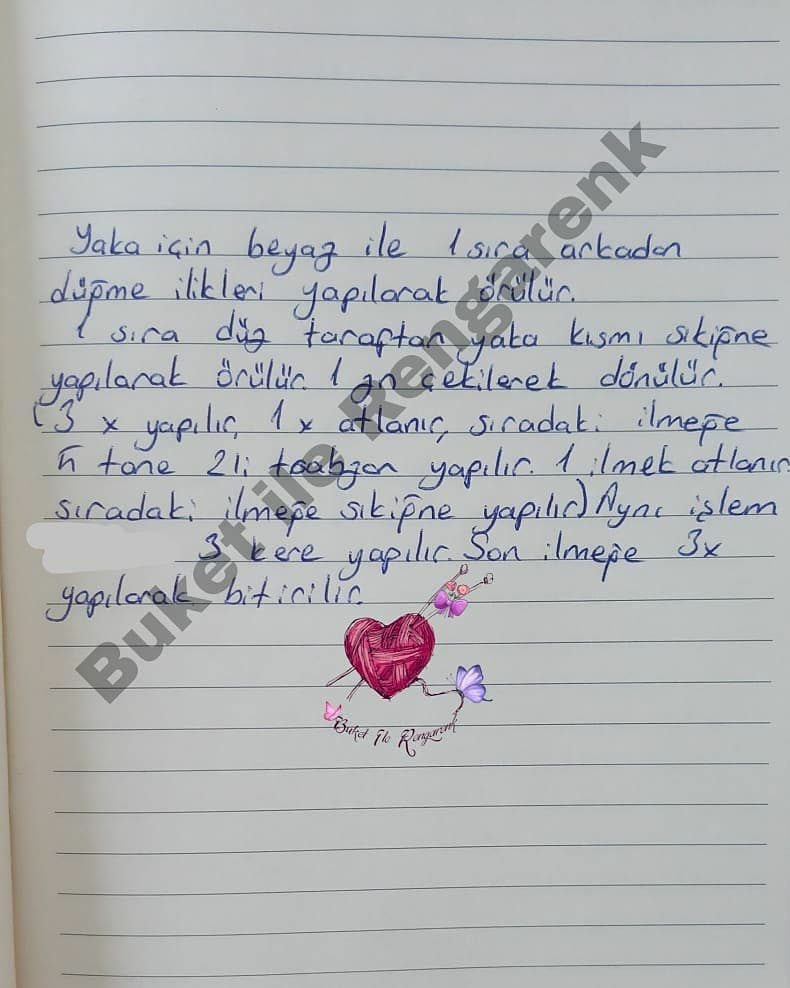 Yaka için beyaz ile 1 sıra arkadan
düğme ilikleri yapılarak örülür.
1 sıra düz taraftan yaka kısmı sıkiğne
yapılarak örülür. 1 zn çekilerek dönülür.
(3 x yapılır, 1 x atlanır, sıradaki ilmeğe
5 tane 2li trabzan yapılır. 1 ilmek atlanır
sıradaki ilmeğe sıkiğne yapılır) Aynı işlem
3 kere yapılır. Son ilmeğe 3x
yapılarak bitirilir.
Buket ile Rengarenk
Buket ile Rengarenk